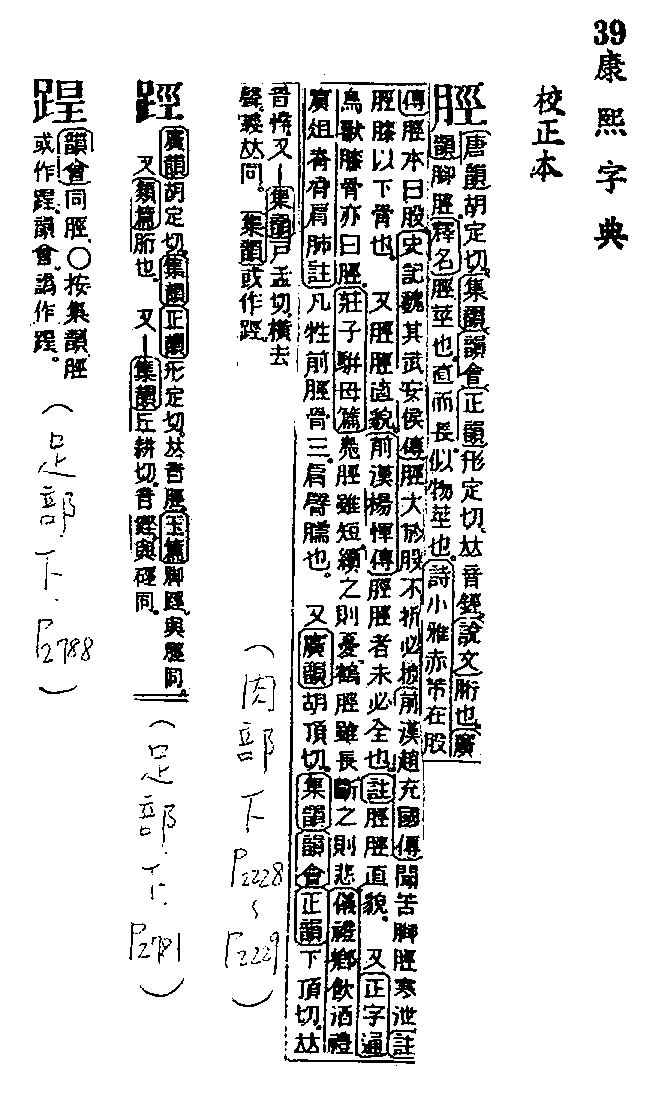 39康熙字典
校正本
脛
唐韻胡定切集韻韻會正韻形定切𠀤音鋞說文胻也廣
韻脚脛釋名脛莖也直而長似物莖也詩小雅赤芾在股
傳脛本曰股史記魏其武安侯傳脛大於股不折必披前漢趙充國傳聞苦脚脛寒泄註
脛膝以下骨也 又脛脛直貌前漢楊惲傳脛脛者未必全也註脛脛直貌 又正字通
鳥獸膝骨亦曰脛莊子駢母篇鳧脛雖短續之則憂鶴脛雖長斷之則悲儀禮鄉飲酒禮
賓俎脊脅肩肺註凡牲前脛骨三肩臂臑也 又廣韻胡頂切集韻韻會正韻下頂切𠀤
音悻又—集韻戸孟切橫去
聲義𠀤同 集韻或作踁
(肉部下 P2228~P2229)
踁
廣韻胡定切集韻正韻形定切𠀤音脛玉篇脚踁與脛同
又類篇胻也 又—集韻丘耕切音鏗與硜同
(足部下 P2781)
踀
韻會同脛○按集韻脛
或作踁韻會譌作
(足部下 P2788)